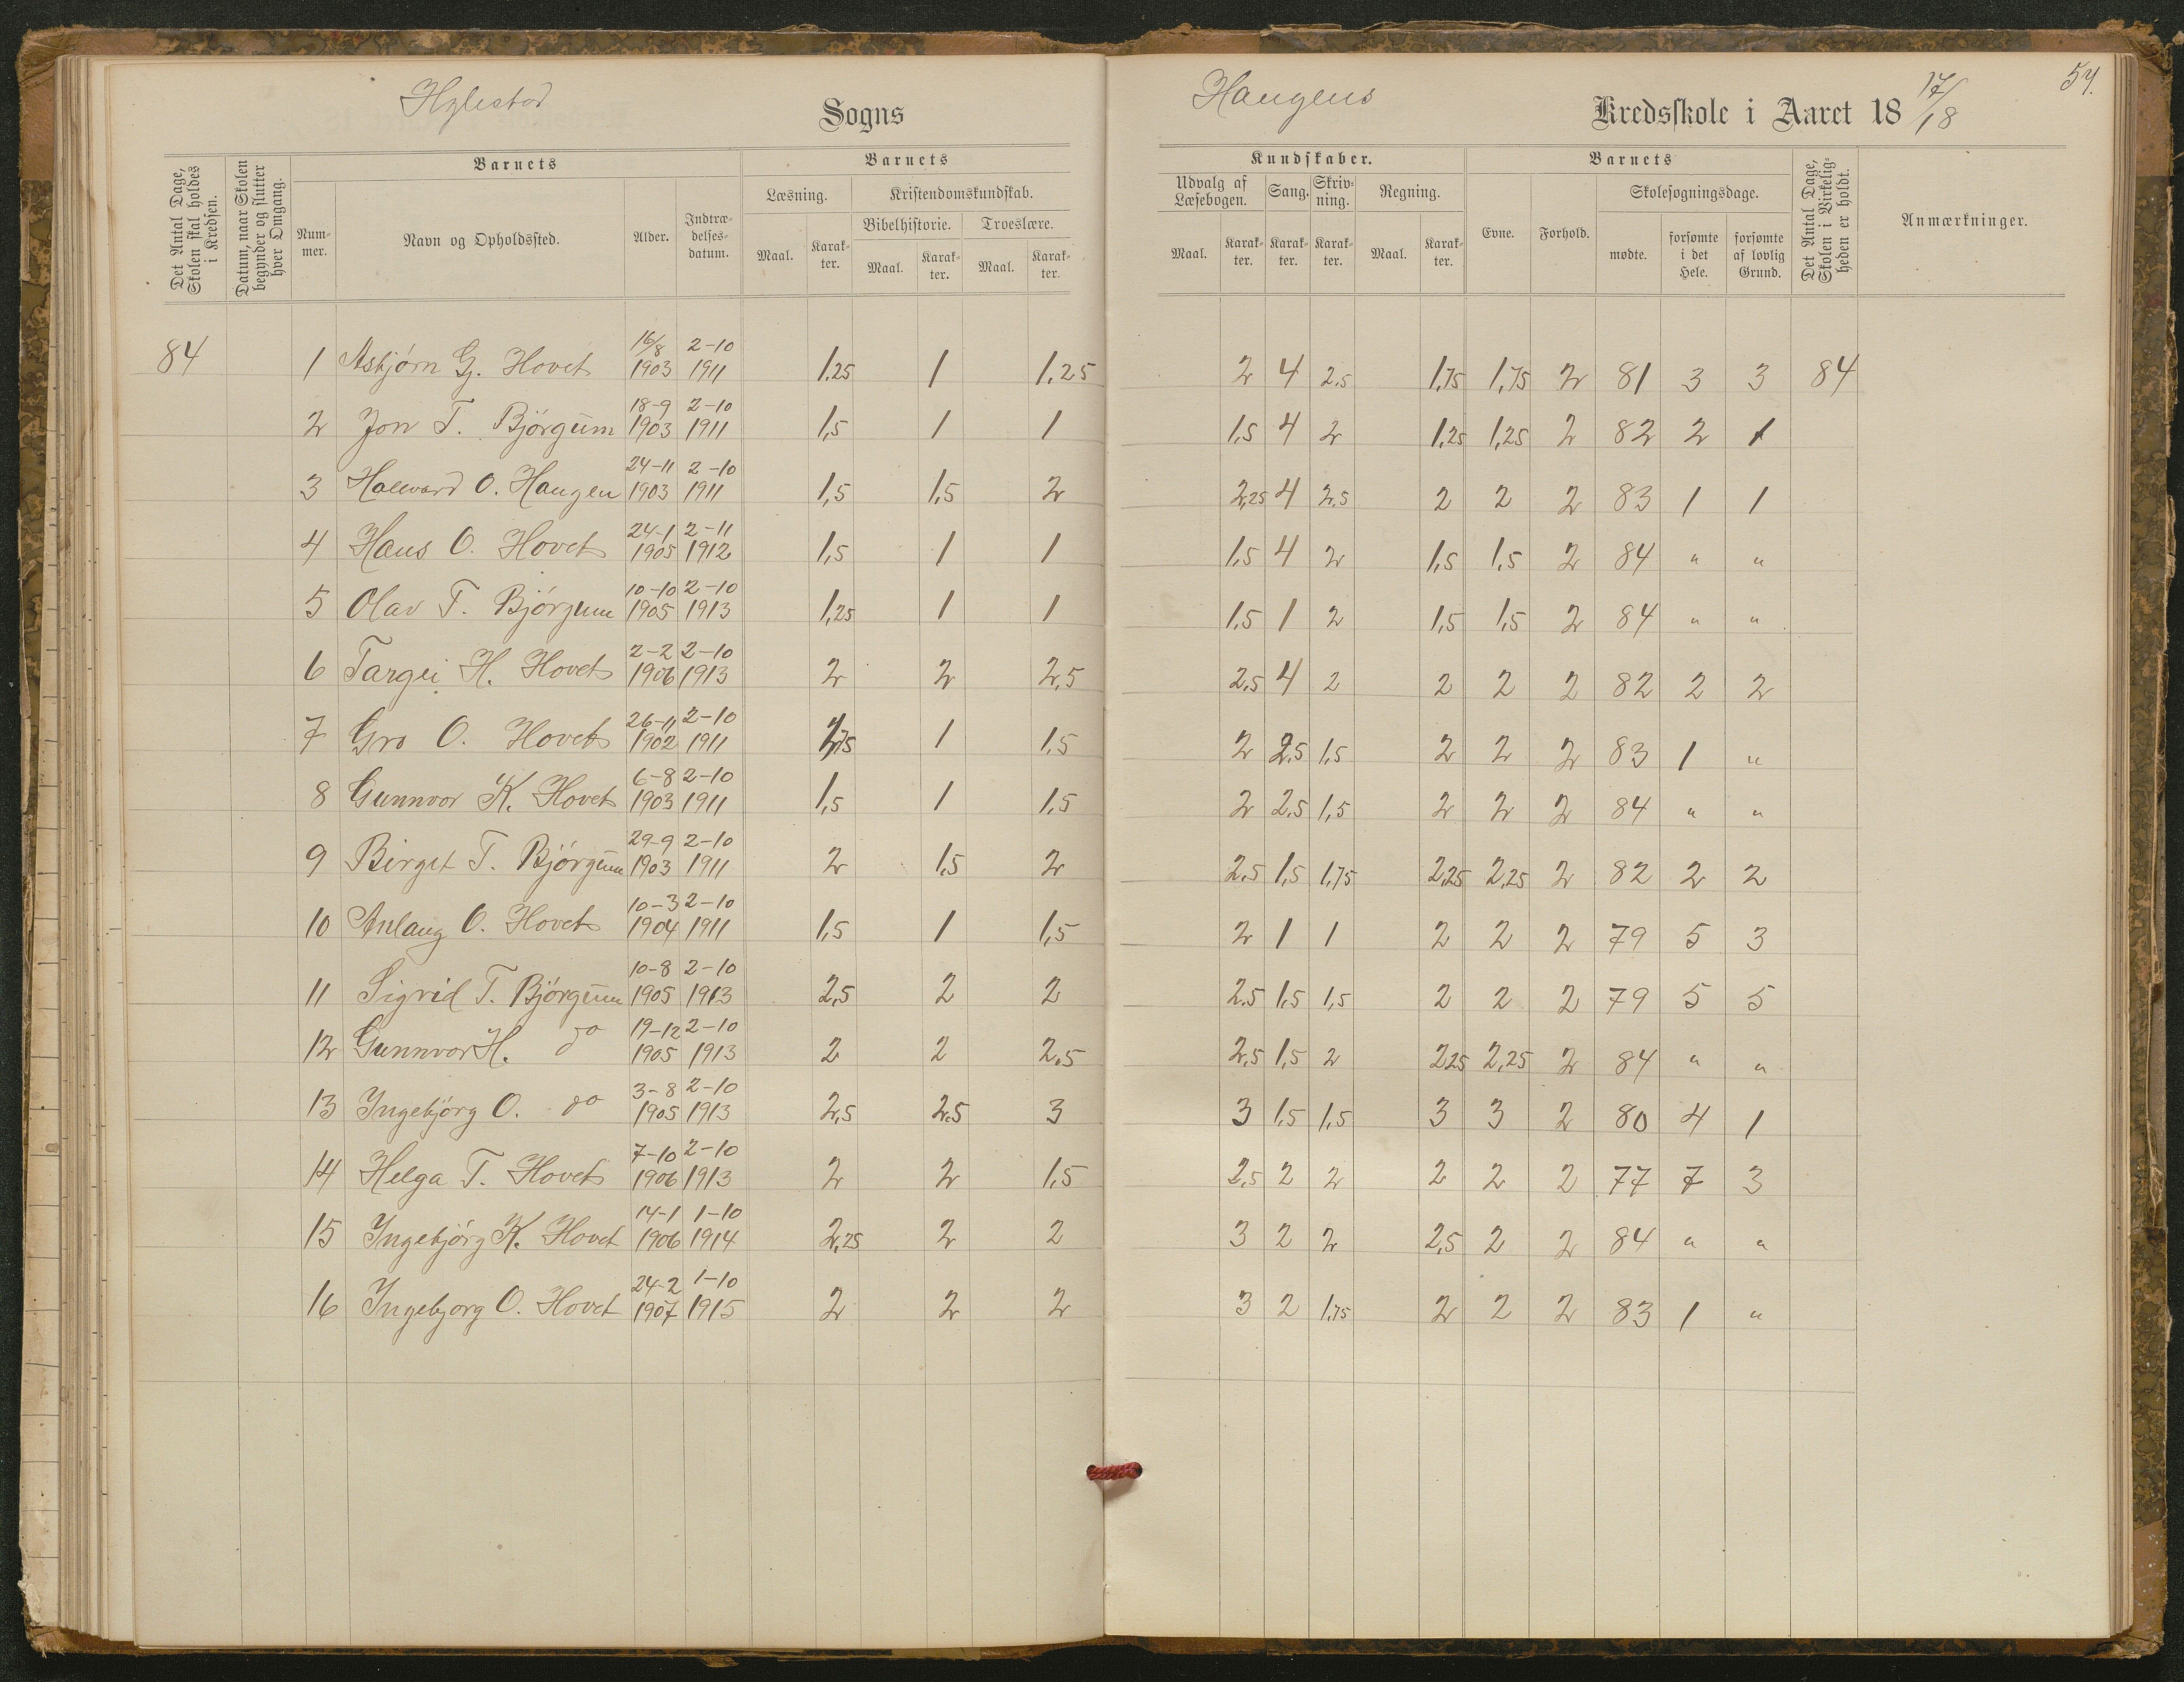 Hylestad Sogns
Haugens Kredsskole i Aaret 18 17/18
54.
Det Antal Dage, Skolen skal holdes i Kredsen.
Datum, naar Skolen begynder og slutter hver Omgang.
Barnets
Num-mer.
Navn og Opholdssted.
Alder.
Indtræ-delses-datum.
Barnets
Læsning.
Kristendomskundskab.
Bibelhistorie.
Troeslære.
Maal. Karak-ter. Maal. Karak-ter. Maal. Karak-ter.
Kundskaber.
Udvalg af Læsebogen. Sang. Skriv-ning. Regning.
Maal. Karak-ter. Karak-ter. Karak-ter. Maal. Karak-ter.
Barnets
Evne. Forhold.
Skolesøgningsdage.
mødte. forsømte i det Hele. forsømte af lovlig Grund.
Det Antal Dage, Skolen i Virkelig-heden er holdt.
Anmærkninger.
84 1 Asbjørn G. Hovet 16/8 1903 2-10 1911 1,25 1 1,25 2 4 2,5 1,75 1,75 2 81 3 3 84
2 Jon T. Bjørgum 18-9 1903 2-10 1911 1,5 1 1 1,5 4 2 1,25 1,25 2 82 2 1
3 Hallvard O. Haugen 24-11 1903 2-10 1911 1,5 1,5 2 2,25 4 2,5 2 2 2 83 1 1
4 Hans O. Hovet 24-1 1905 2-11 1912 1,5 1 1 1,5 4 2 1,5 1,5 2 84 " "
5 Olav T. Bjørgum 10-10 1905 2-10 1913 1,25 1 1 1,5 1 2 1,5 1,5 2 84 " "
6 Targei H. Hovet 2-2 1906 2-10 1913 2 2 2,5 2,5 4 2 2 2 2 82 2 2
7 Gro O. Hovet 26-11 1902 2-10 1911 1,75 1 1,5 2 2,5 1,5 2 2 2 83 1 "
8 Gunnvor K. Hovet 6-8 1903 2-10 1911 1,5 1 1,5 2 2,5 1,5 2 2 2 84 " "
9 Birgit T. Bjørgum 29-9 1903 2-10 1911 2 1,5 2 2,5 1,5 1,75 2,25 2,25 2 82 2 2
10 Anlaug O. Hovet 10-3 1904 2-10 1911 1,5 1 1,5 2 1 1 2 2 2 79 5 3
11 Sigrid T. Bjørgum 10-8 1905 2-10 1913 2,5 2 2 2,5 1,5 1,5 2 2 2 79 5 5
12 Gunnvor H. do 19-12 1905 2-10 1913 2 2 2,5 2,5 1,5 2 2,25 2,25 2 84 " "
13 Ingebjørg O. do 3-8 1905 2-10 1913 2,5 2,5 3 3 1,5 1,5 3 3 2 80 4 1
14 Helga T. Hovet 7-10 1906 2-10 1913 2 2 1,5 2,5 2 2 2 2 2 77 7 3
15 Ingebjørg K. Hovet 14-1 1906 1-10 1914 2,25 2 2 3 2 2 2,5 2 2 84 " "
16 Ingebjorg O. Hovet 24-2 1907 1-10 1915 2 2 2 3 2 1,75 2 2 2 83 1 "